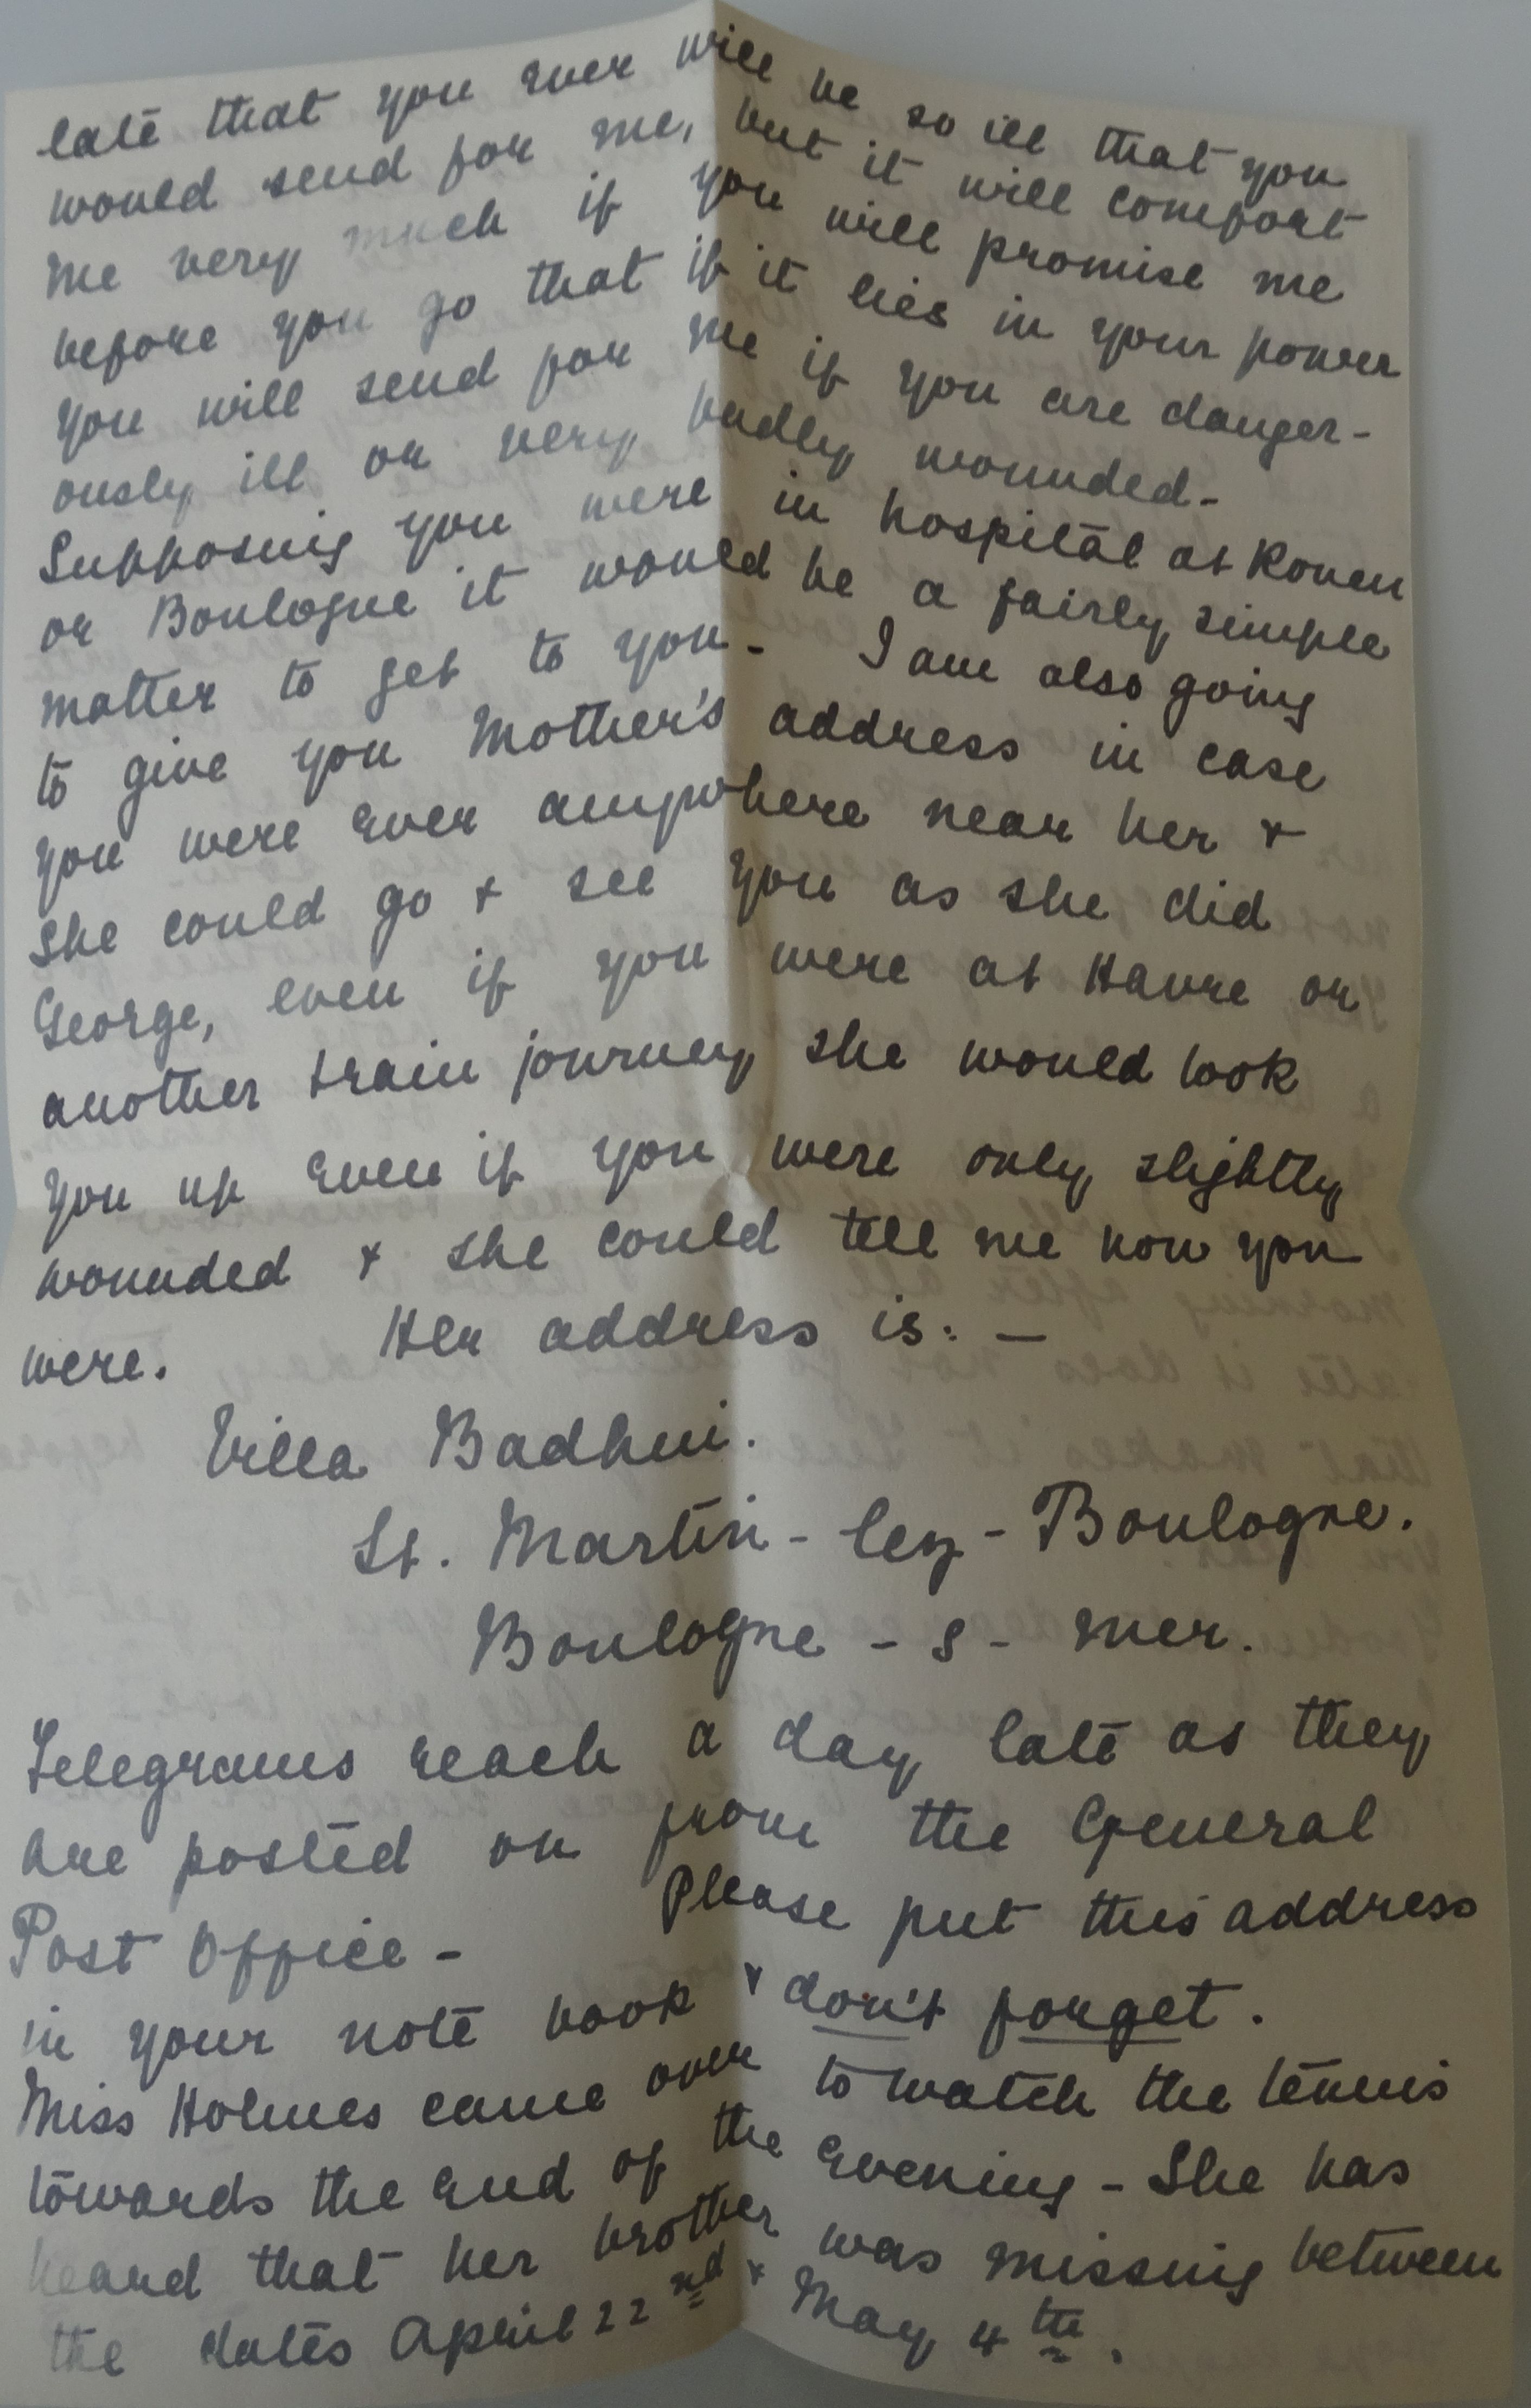 late that you ever will be so ill that you
would send for me, but it will comfort
me very much if you will promise me
before you go that if it lies in your power
you will send for me if you are danger-
ously ill or very badly wounded -
Supposing you were in hospital at Rouen
or Boulogne it would be a fairly simple
matter to get to you - I am also going
to give you Mother's address in case
you were ever anywhere near her &
she could go & see you as she did
George, even if you were at Havre or
another train journey she would look
you up even if you were only slightly
wounded & she could tell me how you
were. Her address is: -
Villa
St. Martin - lez - Boulogne.
Boulogne - s - mer.
Telegrams reach a day late as they
are posted on from the General
Post Office - Please put this address
in your note book & don't forget.
Miss Holmes came over to watch the tennis
towards the end of the evening - She has
heard that her brother was missing between
the dates April 22nd & May 4th.